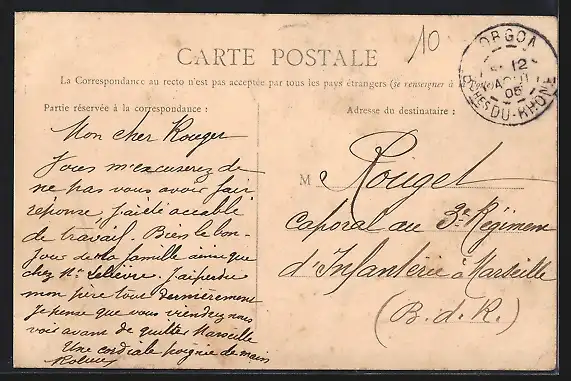 10
ORGON
12
AOUT
05
BCHES-DU-RHONE
CARTE POSTALE
La Correspondance au recto n'est pas acceptée par tous les pays étrangers (se renseigner à la
Partie réservée à la correspondance :
Adresse du destinataire :
Mon cher Rouget
Vous m'excuserez de
ne pas vous avoir fait
réponse, j'ai été accablé
de travail. Bien le bon-
jour de la famille ainsi que
chez Mr Lelièvre. J'ai perdu
mon père tout dernièrement
Je pense que vous viendrez nous
voir avant de quitter Marseille
Une cordiale poignée de main
M Rouget
Caporal au 3e Régiment
d'Infanterie à Marseille
(B. d. R.)